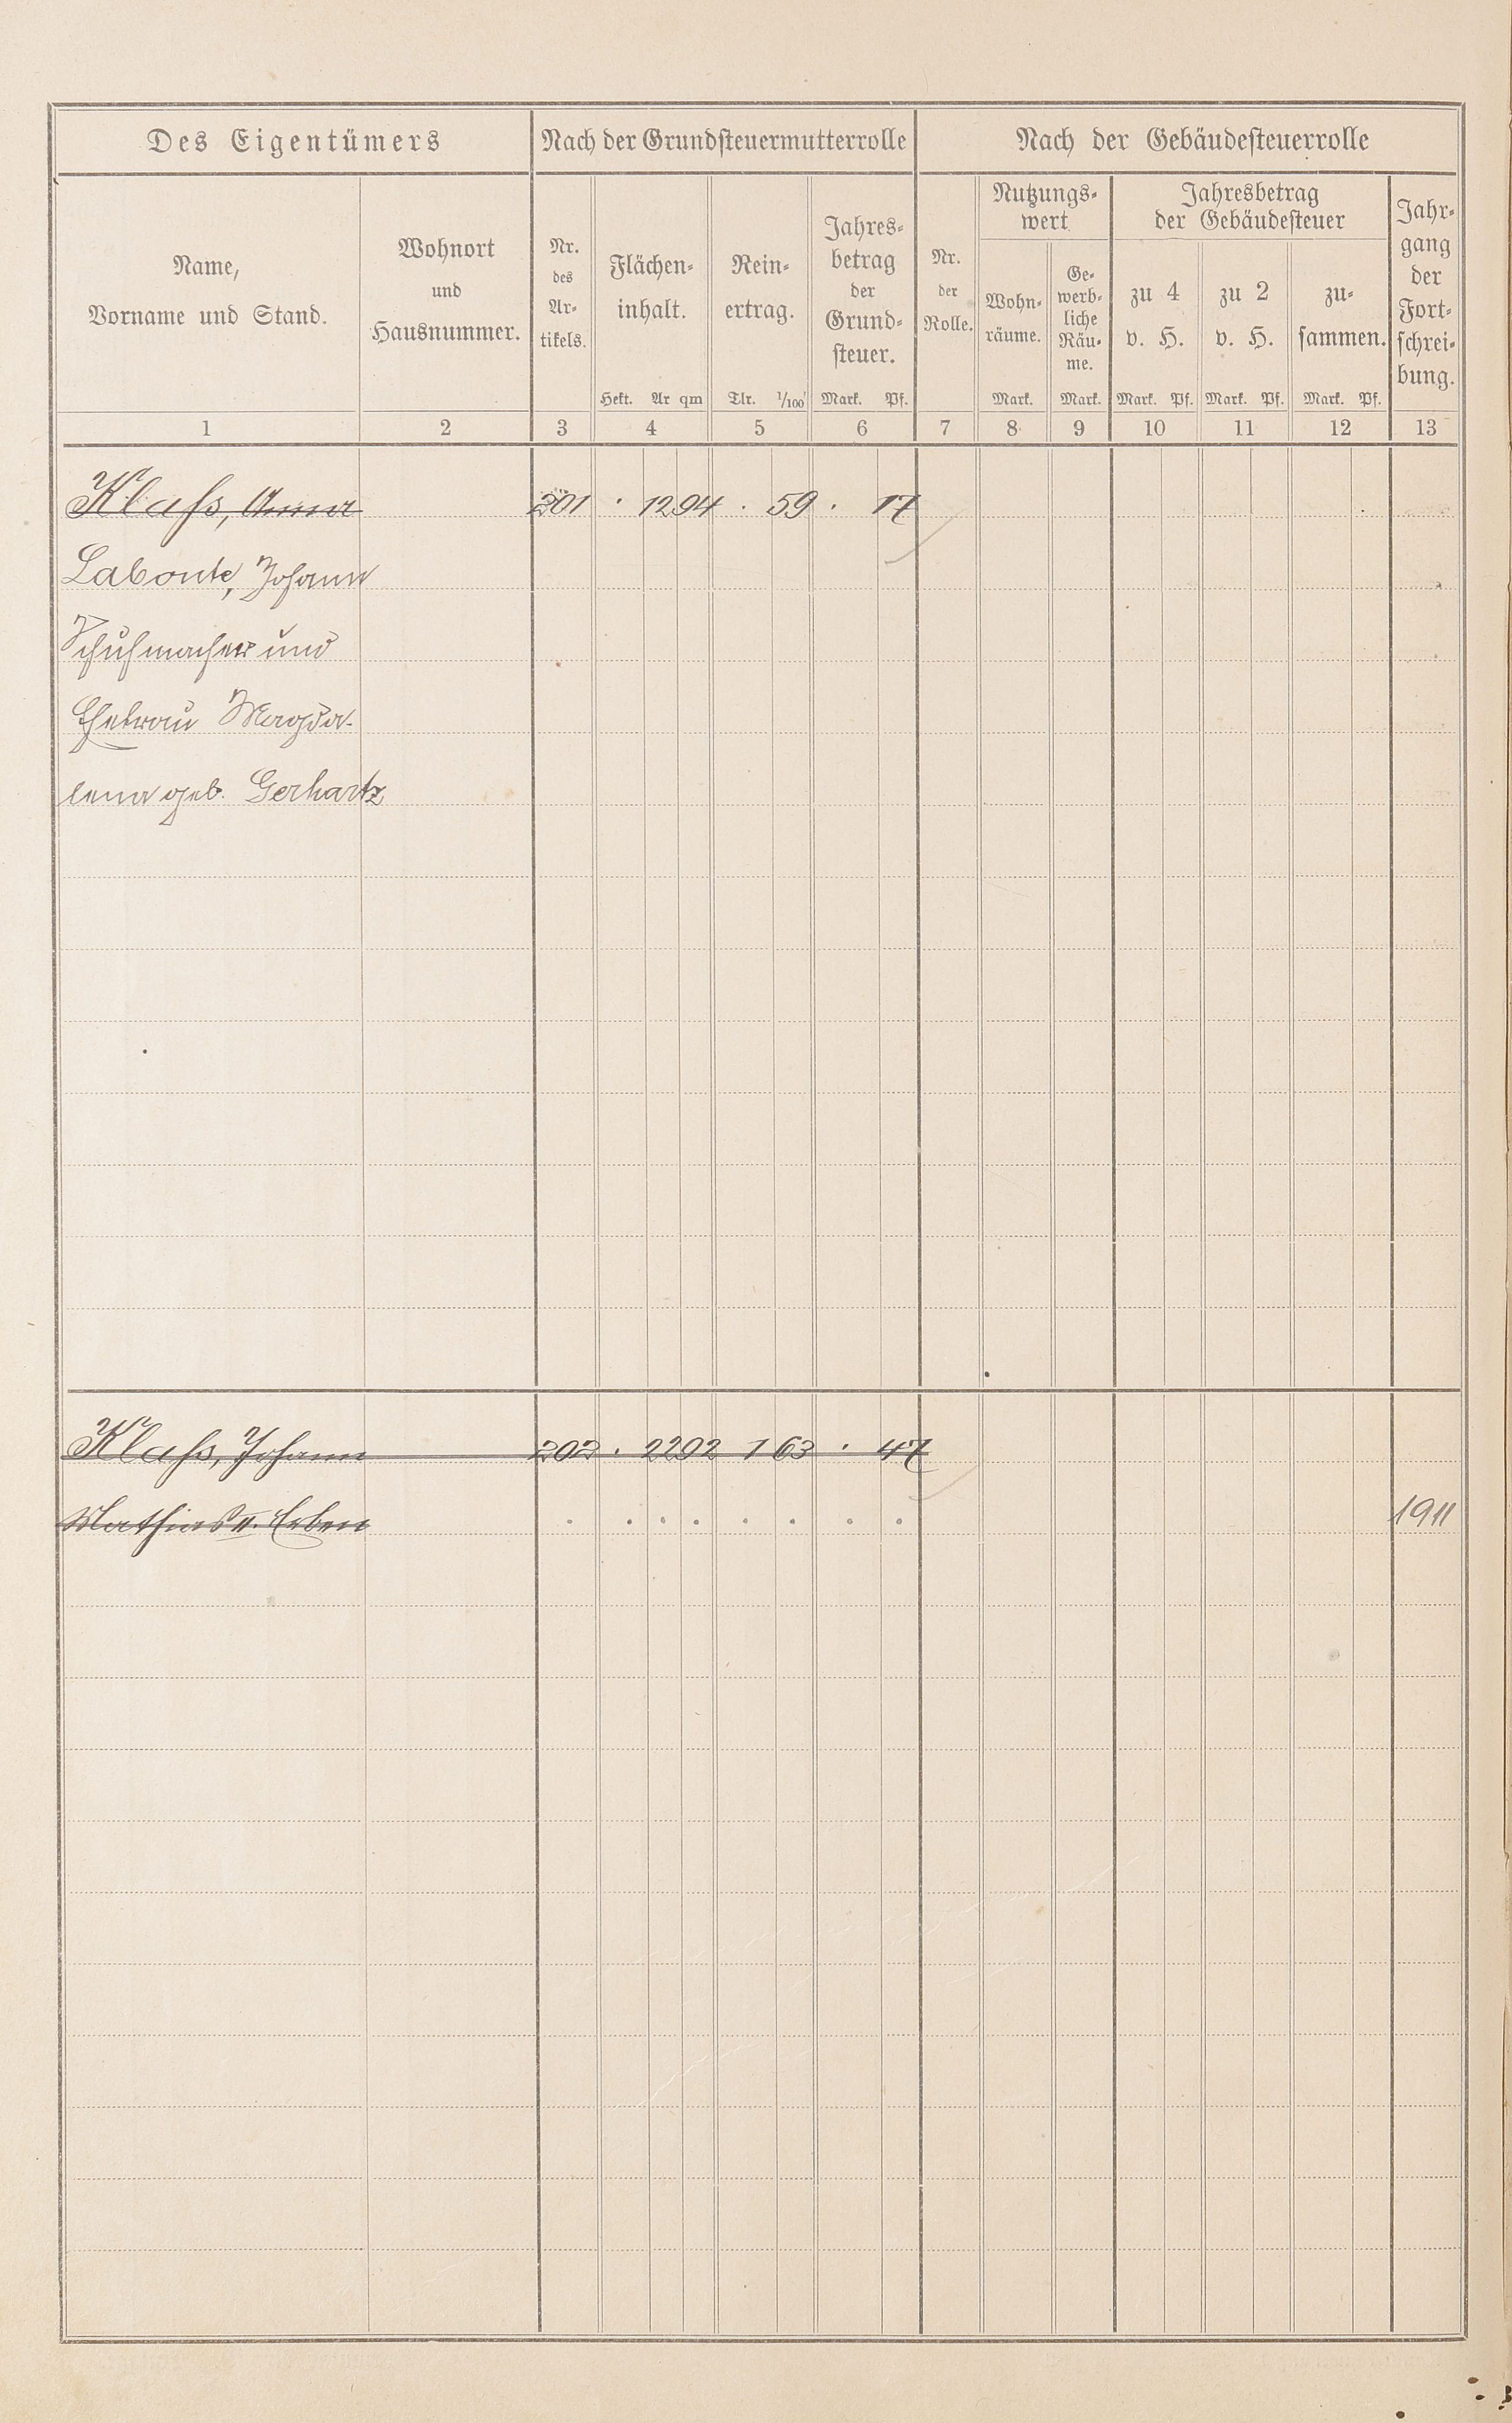 Des Eigentümers Nach der Grundsteuermutterrolle Nach der Gebäudesteuerrolle
Name,
Vorname und Stand.
Wohnort
und
Hausnummer.
Nr.
des
Ar-
tikels.
Flächen-
inhalt.
Hekt. Ar qm
Rein-
ertrag.
Tlr. 1/100
Jahres-
betrag
der
Grund-
steuer.
Mark. Pf.
Nr.
der
Rolle.
Nutzungs-
wert
Wohn-
räume.
Mark.
Ge-
werb-
liche
Räu-
me.
Mark.
Jahresbetrag
der Gebäudesteuer
zu 4
v. H.
Mark. Pf.
zu 2
v. H.
Mark. Pf.
zu-
sammen.
Mark. Pf.
Jahr-
gang
der
Fort-
schrei-
bung.
1 2 3 4 5 6 7 8 9 10 11 12 13
Klaß, Anna 201 . 12 94 . 59 . 17
Labonte, Johann
Schuhmacher und
Ehefrau Magda-
lena geb. Gerhartz
Klaß, Johann 202 . 22 92 1 63 . 47
Mathias II. Erben . . . . . . . . 1911